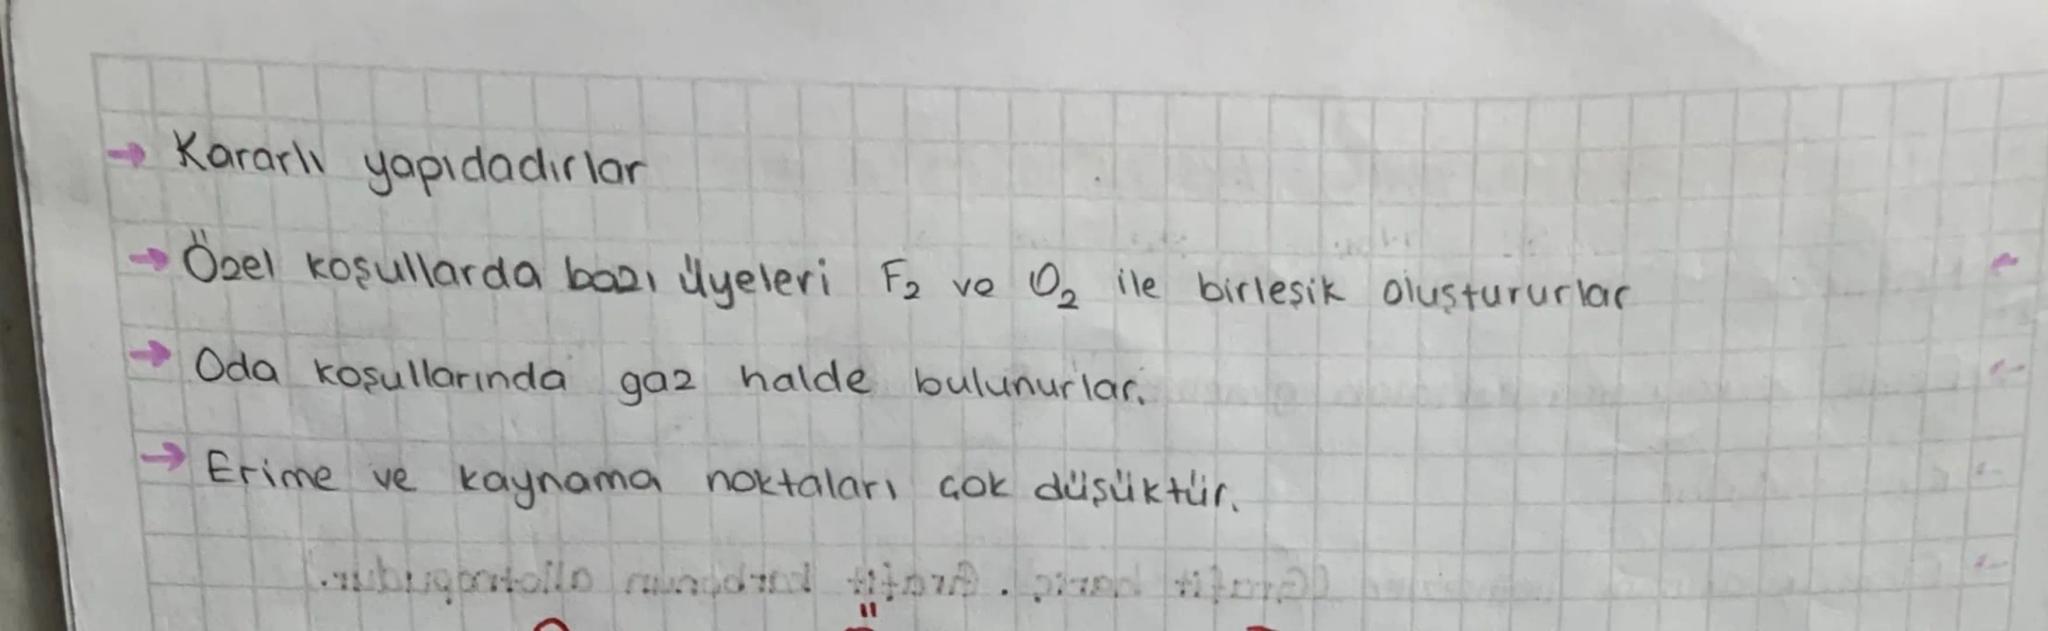 → Kararlı yapıdadırlar
→ Özel koşullarda bazı üyeleri F₂ ve O₂ ile birleşik oluştururlar
→ Oda koşullarında gaz halde bulunurlar.
→ Erime ve kaynama noktaları çok düşüktür.